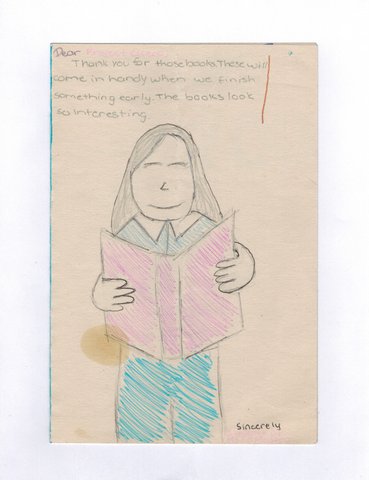 Dear
Thank you for those books. These will
come in handy when we finish
something early. The books look
so interesting
Sincerely